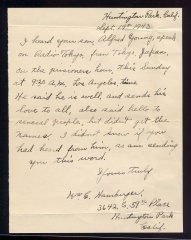 Huntington Park, Calif.
Sept. 12th 1943
I heard your son, Alfred Young, speak
on Radio Tokyo, from Tokyo, Japan,
on the prisoners hour, this Sunday
at 9:30 A.M. Los Angeles time
He said he is well, and sends his
love to all, also said hello to
several people, but didn't get the
names, I didn't know if you
had heard from him, so am sending
you this word.
Yours Truly
Wm E. Hamburger,
3642 E. 58th Place
Huntington Park
Calif.